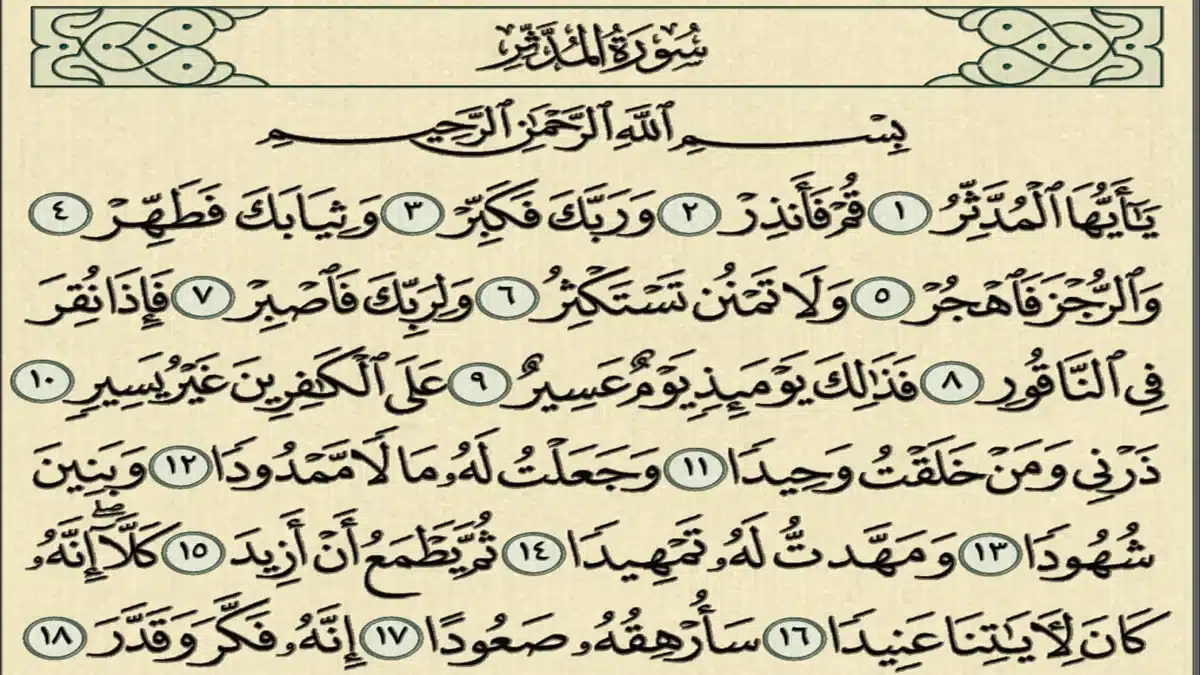 سُورَةُ الْمُدَّثِّرِ
بِسْمِ ٱللَّهِ ٱلرَّحْمَٰنِ ٱلرَّحِيمِ
يَٰٓأَيُّهَا ٱلْمُدَّثِّرُ ١ قُمْ فَأَنذِرْ ٢ وَرَبَّكَ فَكَبِّرْ ٣ وَثِيَابَكَ فَطَهِّرْ ٤
وَٱلرُّجْزَ فَٱهْجُرْ ٥ وَلَا تَمْنُن تَسْتَكْثِرُ ٦ وَلِرَبِّكَ فَٱصْبِرْ ٧ فَإِذَا نُقِرَ
فِى ٱلنَّاقُورِ ٨ فَذَٰلِكَ يَوْمَئِذٍ يَوْمٌ عَسِيرٌ ٩ عَلَى ٱلْكَٰفِرِينَ غَيْرُ يَسِيرٍ ١٠
ذَرْنِى وَمَنْ خَلَقْتُ وَحِيدًا ١١ وَجَعَلْتُ لَهُۥ مَالًا مَّمْدُودًا ١٢ وَبَنِينَ
شُهُودًا ١٣ وَمَهَّدتُّ لَهُۥ تَمْهِيدًا ١٤ ثُمَّ يَطْمَعُ أَنْ أَزِيدَ ١٥ كَلَّآ ۖ إِنَّهُۥ
كَانَ لِءَايَٰتِنَا عَنِيدًا ١٦ سَأُرْهِقُهُۥ صَعُودًا ١٧ إِنَّهُۥ فَكَّرَ وَقَدَّرَ ١٨